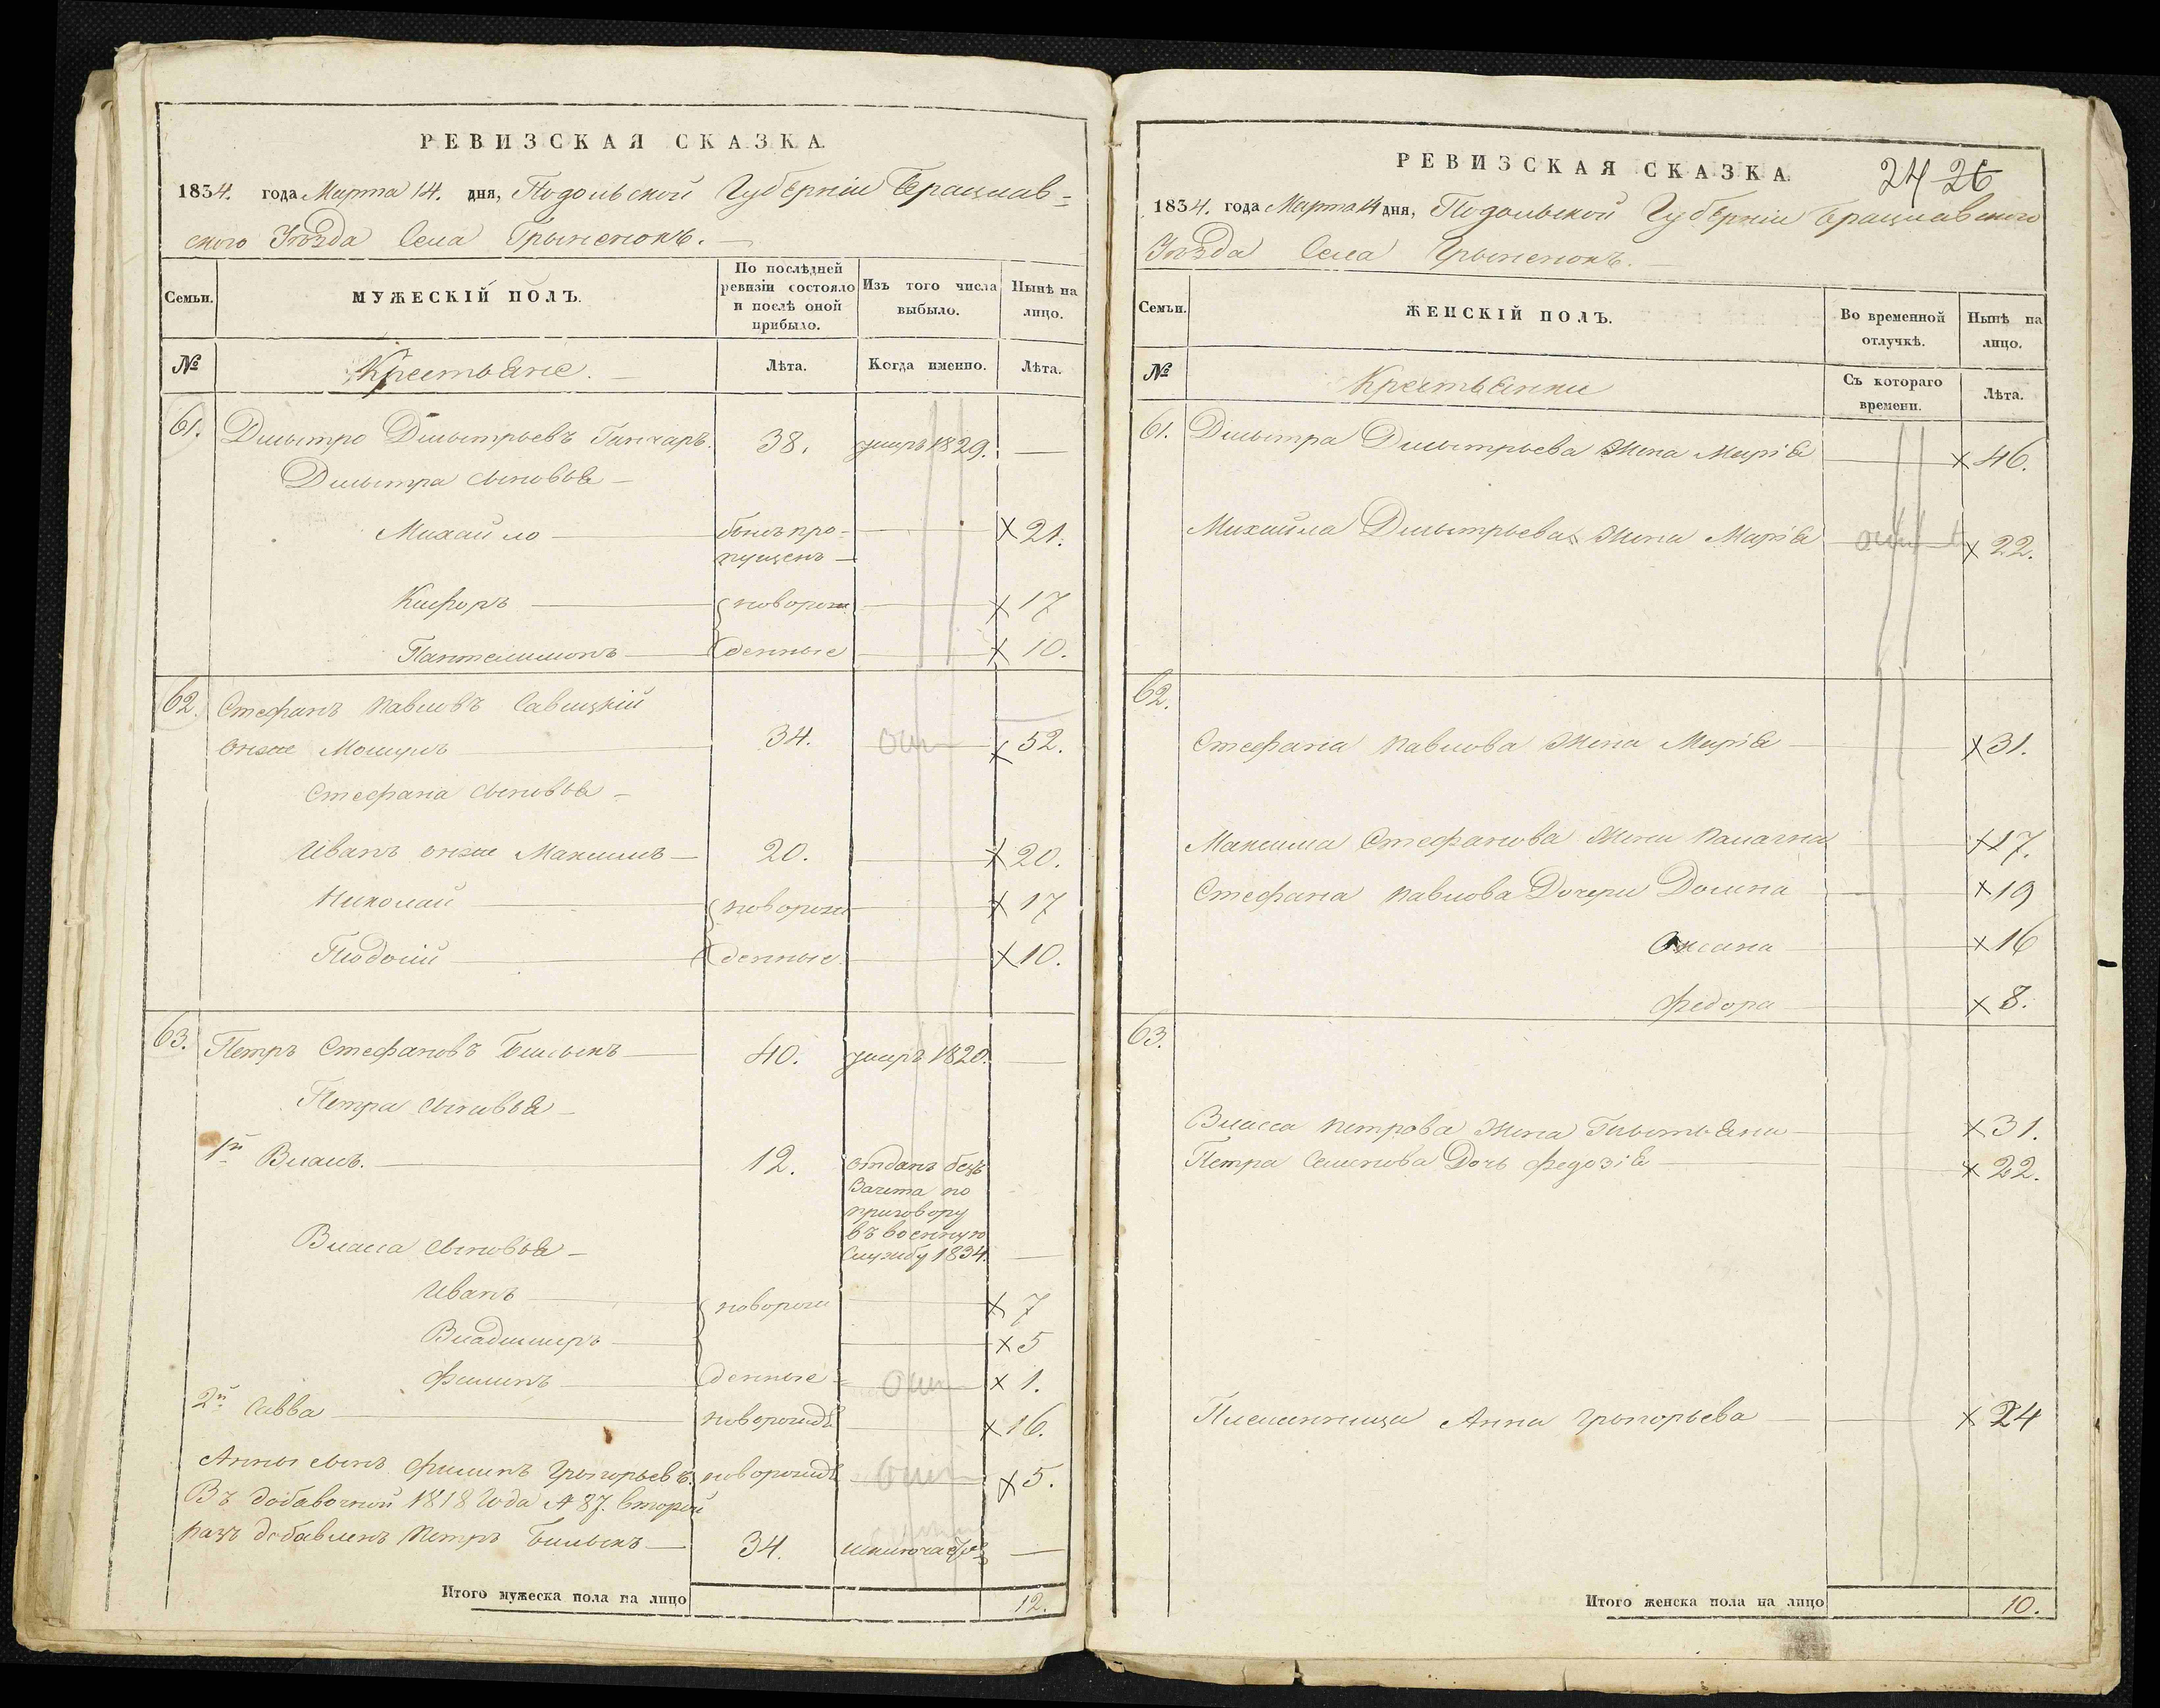 РЕВИЗСКАЯ СКАЗКА
1834. года Марта 14. дня, Подольской Губерніи Брацлав=
ского Уѣзда Села Грыненокъ.
Семьи.
МУЖЕСКІЙ ПОЛЪ.
По послѣдней ревизіи состояло и послѣ оной прибыло.
Изъ того числа выбыло.
Нынѣ на лицо.
№
Крестьяне.
Лѣта.
Когда именно.
Лѣта.
61. Дмытро Дмытрьевъ Ганчаръ. 38. умеръ 1829. —
Дмытра сыновья —
Михайло — былъ про-пущенъ — х 21.
Кифоръ — новорож х 17
Пантелимонъ — денные х 10.
62. Стефанъ Павловъ Савицкій
онже 34. х 52.
Стефана сыновья —
Иванъ онже Максимъ — 20. х 20.
Николай — новорож х 17
денные х 10.
63. Петръ Стефановъ Билыкъ — 40. умеръ 1820. —
Петра сыновья —
1й Власъ. — 12. отданъ безъ
Зачета по
приговору
въ военную
Службу 1834. —
Власа сыновья —
Иванъ — новорож х 7
Владимиръ — х 5
Филипъ — денные х 1.
2й Савва — новорожд х 16.
Анны сынъ Филипъ Грыгорьевъ. новорожд х 5.
Въ добавочной 1818 Года № 87. Второй
разъ добавленъ Петръ Билыкъ — 34. —
Итого мужеска пола на лицо 12.
РЕВИЗСКАЯ СКАЗКА
24 26
1834. года Марта 14 дня, Подольской Губерніи Брацлавского
Уѣзда Села Грыненокъ.
Семьи.
ЖЕНСКІЙ ПОЛЪ.
Во временной отлучкѣ.
Нынѣ на лицо.
№
Крестьянки
Съ котораго времени.
Лѣта.
61. Дмытра Дмытрьева Жена Марія х 46.
Михайла Дмытрьева Жена Марія х 22.
62.
Стефана Павлова Жена Марія х 31.
Максима Стефанова Жена х 17.
Стефана Павлова Дочери Домна х 19
Оксана х 16
Федора х 8.
63.
Власса Петрова Жена х 31.
Петра Семенова Дочь Федозія х 22.
Племянница Анна Грыгорьева х 24
Итого женска пола на лицо 10.